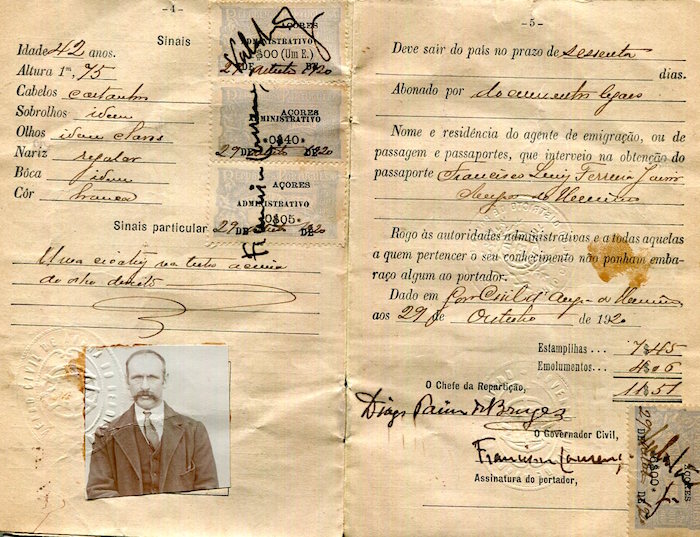 — 4 —
Sinais
Idade 42 anos.
Altura 1m, 75
Cabelos castanhos
Sobrolhos idem
Olhos idem claros
Nariz regular
Bôca idem
Côr branca
Sinais particular
Uma cicatriz na testa acima
do olho direito
AÇORES
ADMINISTRATIVO
$00 (Um E.)
29 DE outubro DE 1920
AÇORES
ADMINISTRATIVO
0$40
29 DE outubro DE 1920
AÇORES
ADMINISTRATIVO
0$05
29 DE outubro DE 1920
— 5 —
Deve sair do país no prazo de sessenta
dias.
Abonado por documentos legaes
Nome e residência do agente de emigração, ou de
passagem e passaportes, que interveio na obtenção do
passaporte Francisco Luiz Ferreira Junior
Angra do Heroismo
Rogo às autoridades administrativas e a todas aquelas
a quem pertencer o seu conhecimento não ponham emba-
raço algum ao portador.
Dado em Gov. Civil d'Angra do Heroismo
aos 29 de Outubro de 1920
Estampilhas... 7$45
Emolumentos... 4$06
11$51
O Chefe da Repartição,
Diogo Paim de Bruges
O Governador Civil,
Francisco Lourenço
Assinatura do portador,
AÇORES